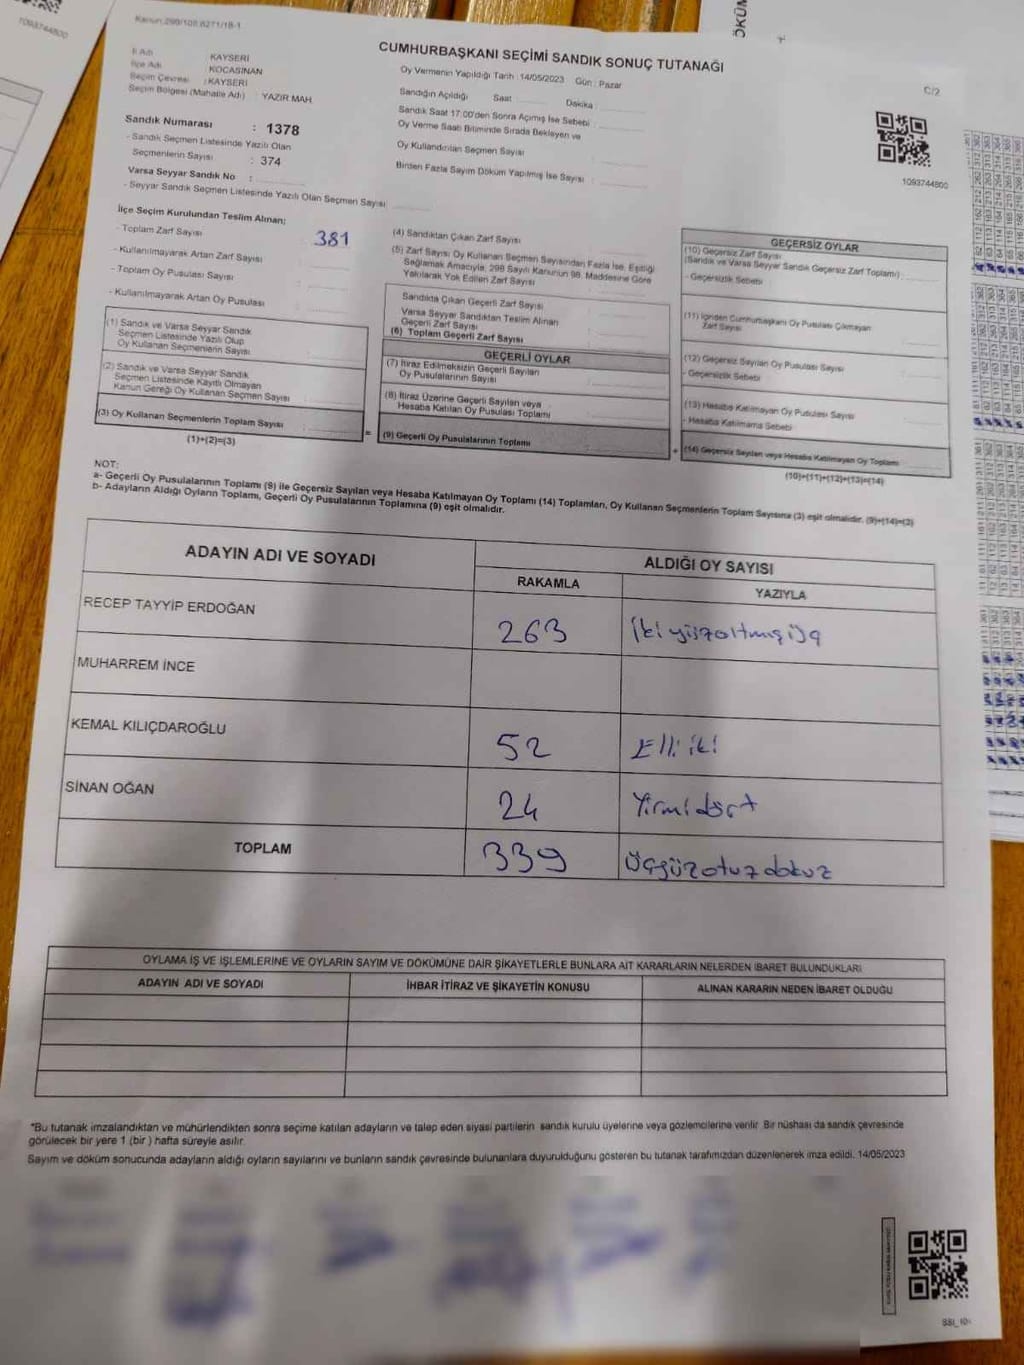 1093744800
Kanun:298/108.6271/18-1
CUMHURBAŞKANI SEÇİMİ SANDIK SONUÇ TUTANAĞI
C/2
İl Adı : KAYSERİ
İlçe Adı : KOCASİNAN
Seçim Çevresi : KAYSERİ
Seçim Bölgesi (Mahalle Adı) : YAZIR MAH.
Sandık Numarası : 1378
- Sandık Seçmen Listesinde Yazılı Olan
Seçmenlerin Sayısı : 374
Varsa Seyyar Sandık No :
- Seyyar Sandık Seçmen Listesinde Yazılı Olan Seçmen Sayısı
Oy Vermenin Yapıldığı Tarih :14/05/2023 Gün : Pazar
Sandığın Açıldığı Saat Dakika :
Sandık Saat 17:00'den Sonra Açımış İse Sebebi :
Oy Verme Saati Bitiminde Sırada Bekleyen ve
Oy Kullandırılan Seçmen Sayısı :
Birden Fazla Sayım Döküm Yapılmış İse Sayısı :
1093744800
İlçe Seçim Kurulundan Teslim Alınan;
- Toplam Zarf Sayısı : 381
- Kullanılmayarak Artan Zarf Sayısı :
- Toplam Oy Pusulası Sayısı :
- Kullanılmayarak Artan Oy Pusulası :
(1) Sandık ve Varsa Seyyar Sandık
Seçmen Listesinde Yazılı Olup
Oy Kullanan Seçmenlerin Sayısı :
(2) Sandık ve Varsa Seyyar Sandık
Seçmen Listesinde Kayıtlı Olmayan
Kanun Gereği Oy Kullanan Seçmen Sayısı :
(3) Oy Kullanan Seçmenlerin Toplam Sayısı :
(1)+(2)=(3)
(4) Sandıktan Çıkan Zarf Sayısı
(5) Zarf Sayısı Oy Kullanan Seçmen Sayısından Fazla İse, Eşitliği
Sağlamak Amacıyla; 298 Sayılı Kanunun 98. Maddesine Göre
Yakılarak Yok Edilen Zarf Sayısı :
Sandıkta Çıkan Geçerli Zarf Sayısı :
Varsa Seyyar Sandıktan Teslim Alınan
Geçerli Zarf Sayısı :
(6) Toplam Geçerli Zarf Sayısı :
GEÇERLİ OYLAR
(7) İtiraz Edilmeksizin Geçerli Sayılan
Oy Pusulalarının Sayısı :
(8) İtiraz Üzerine Geçerli Sayılan veya
Hesaba Katılan Oy Pusulası Toplamı :
= (9) Geçerli Oy Pusulalarının Toplamı :
GEÇERSİZ OYLAR
(10) Geçersiz Zarf Sayısı
(Sandık ve Varsa Seyyar Sandık Geçersiz Zarf Toplamı) :
- Geçersizlik Sebebi :
(11) İçinden Cumhurbaşkanı Oy Pusulası Çıkmayan
Zarf Sayısı :
(12) Geçersiz Sayılan Oy Pusulası Sayısı :
- Geçersizlik Sebebi :
(13) Hesaba Katılmayan Oy Pusulası Sayısı :
- Hesaba Katılmama Sebebi :
+ (14) Geçersiz Sayılan veya Hesaba Katılmayan Oy Toplamı :
(10)+(11)+(12)+(13)=(14)
NOT:
a- Geçerli Oy Pusulalarının Toplamı (9) ile Geçersiz Sayılan veya Hesaba Katılmayan Oy Toplamı (14) Toplamları, Oy Kullanan Seçmenlerin Toplam Sayısına (3) eşit olmalıdır. (9)+(14)=(3)
b- Adayların Aldığı Oyların Toplamı, Geçerli Oy Pusulalarının Toplamına (9) eşit olmalıdır.
ADAYIN ADI VE SOYADI ALDIĞI OY SAYISI
RAKAMLA YAZIYLA
RECEP TAYYİP ERDOĞAN 263 İkiyüzaltmışüç
MUHARREM İNCE
KEMAL KILIÇDAROĞLU 52 Elli iki
SİNAN OĞAN 24 Yirmidört
TOPLAM 339 Üçyüzotuzdokuz
OYLAMA İŞ VE İŞLEMLERİNE VE OYLARIN SAYIM VE DÖKÜMÜNE DAİR ŞİKAYETLERLE BUNLARA AİT KARARLARIN NELERDEN İBARET BULUNDUKLARI
ADAYIN ADI VE SOYADI İHBAR İTİRAZ VE ŞİKAYETİN KONUSU ALINAN KARARIN NEDEN İBARET OLDUĞU
*Bu tutanak imzalandıktan ve mühürlendikten sonra seçime katılan adayların ve talep eden siyasi partilerin sandık kurulu üyelerine veya gözlemcilerine verilir. Bir nüshası da sandık çevresinde
görülecek bir yere 1 (bir ) hafta süreyle asılır.
Sayım ve döküm sonucunda adayların aldığı oyların sayılarını ve bunların sandık çevresinde bulunanlara duyurulduğunu gösteren bu tutanak tarafımızdan düzenlenerek imza edildi. 14/05/2023